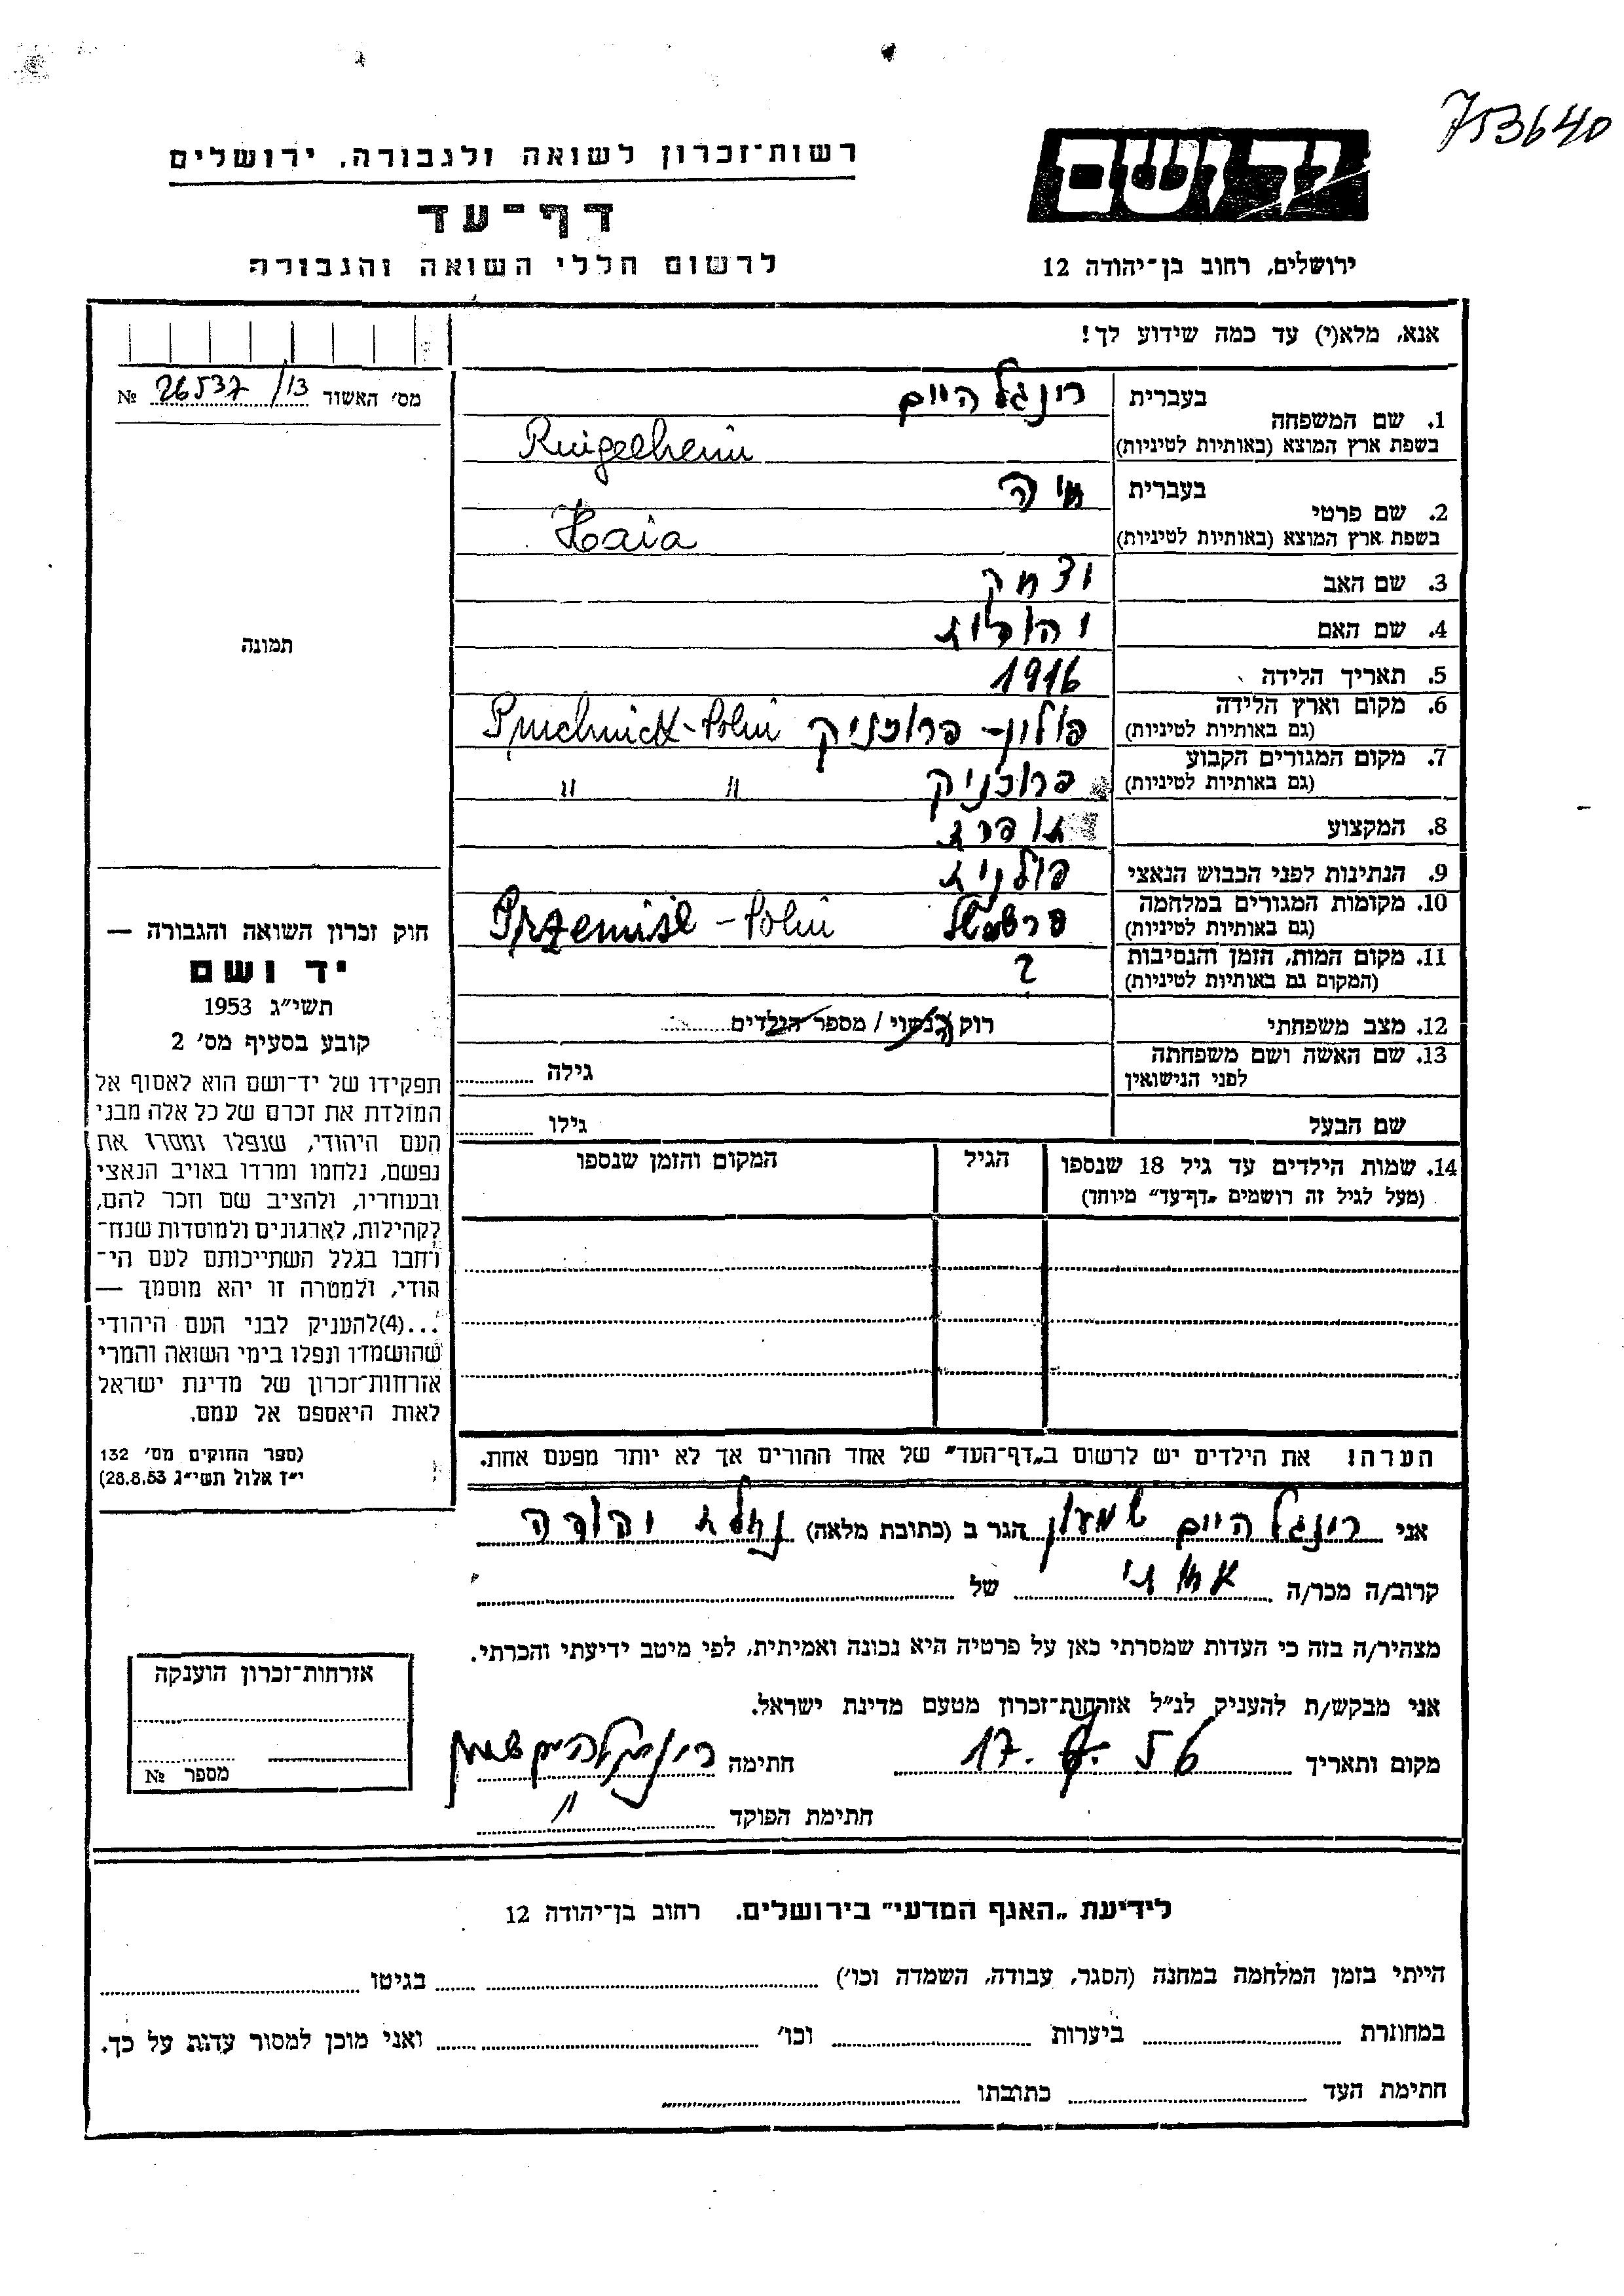 753640
יד ושם
רשות־זכרון לשואה ולגבורה, ירושלים
דף־עד
לרשום חללי השואה והגבורה
ירושלים, רחוב בן־יהודה 12
אנא, מלא(י) עד כמה שידוע לך!
מס׳ האשור 26537/13 №
1. שם המשפחה
בעברית רינגלהיים
בשפת ארץ המוצא (באותיות לטיניות) Ringelheim
2. שם פרטי
בעברית חיה
בשפת ארץ המוצא (באותיות לטיניות) Haia
3. שם האב יצחק
4. שם האם יהודית
5. תאריך הלידה 1916
6. מקום וארץ הלידה
(גם באותיות לטיניות) פולין - פרוכניק Pruchnick - Polin
7. מקום המגורים הקבוע
(גם באותיות לטיניות) פרוכניק " "
8. המקצוע תופרת
9. הנתינות לפני הכבוש הנאצי פולנית
10. מקומות המגורים במלחמה
(גם באותיות לטיניות) פרשמישל Przemisle - Polin
11. מקום המות, הזמן והנסיבות
(המקום גם באותיות לטיניות) ?
12. מצב משפחתי רוק / נשוי / מספר הילדים
13. שם האשה ושם משפחתה
לפני הנישואין גילה
שם הבעל גילו
14. שמות הילדים עד גיל 18 שנספו
(מעל לגיל זה רושמים „דף־עד״ מיוחד)
הגיל
המקום והזמן שנספו
תמונה
חוק זכרון השואה והגבורה —
יד ושם
תשי״ג 1953
קובע בסעיף מס׳ 2
תפקידו של יד־ושם הוא לאסוף אל
המולדת את זכרם של כל אלה מבני
העם היהודי, שנפלו ומסרו את
נפשם, נלחמו ומרדו באויב הנאצי
ובעוזריו, ולהציב שם וזכר להם,
לקהילות, לארגונים ולמוסדות שנח־
רחבו בגלל השתייכותם לעם הי־
הודי, ולמטרה זו יהא מוסמך —
...(4)להעניק לבני העם היהודי
שהושמדו ונפלו בימי השואה והמרי
אזרחות־זכרון של מדינת ישראל
לאות היאספם אל עמם.
(ספר החוקים מס׳ 132
י״ז אלול תשי״ג 28.8.53)
הערה! את הילדים יש לרשום ב„דף־העד״ של אחד ההורים אך לא יותר מפעם אחת.
אני רינגלהיים שמעון הגר ב (כתובת מלאה) נחלת יהודה
קרוב/ה מכר/ה אחותי של
מצהיר/ה בזה כי העדות שמסרתי כאן על פרטיה היא נכונה ואמיתית, לפי מיטב ידיעתי והכרתי.
אני מבקש/ת להעניק לנ״ל אזרחות־זכרון מטעם מדינת ישראל.
מקום ותאריך 56 חתימה רינגלהיים שמעון
חתימת הפוקד "
אזרחות־זכרון הוענקה
מספר №
לידיעת „האגף המדעי״ בירושלים, רחוב בן־יהודה 12
הייתי בזמן המלחמה במחנה (הסגר, עבודה, השמדה וכו׳) בגיטו
במחתרת ביערות וכו׳ ואני מוכן למסור עדות על כך.
חתימת העד כתובתו